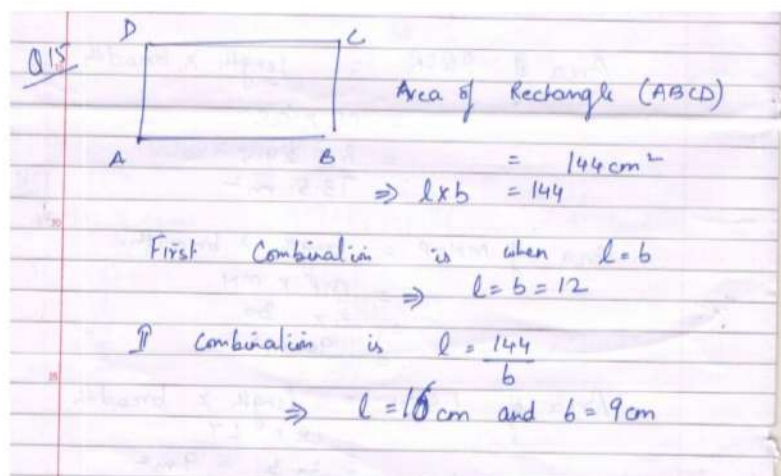 Q15
D C
Area of Rectangle (ABCD)
A B
= 144 cm²
⇒ l x b = 144
First Combination is when l = b
⇒ l = b = 12
II Combination is l = 144/b
⇒ l = 16 cm and b = 9 cm